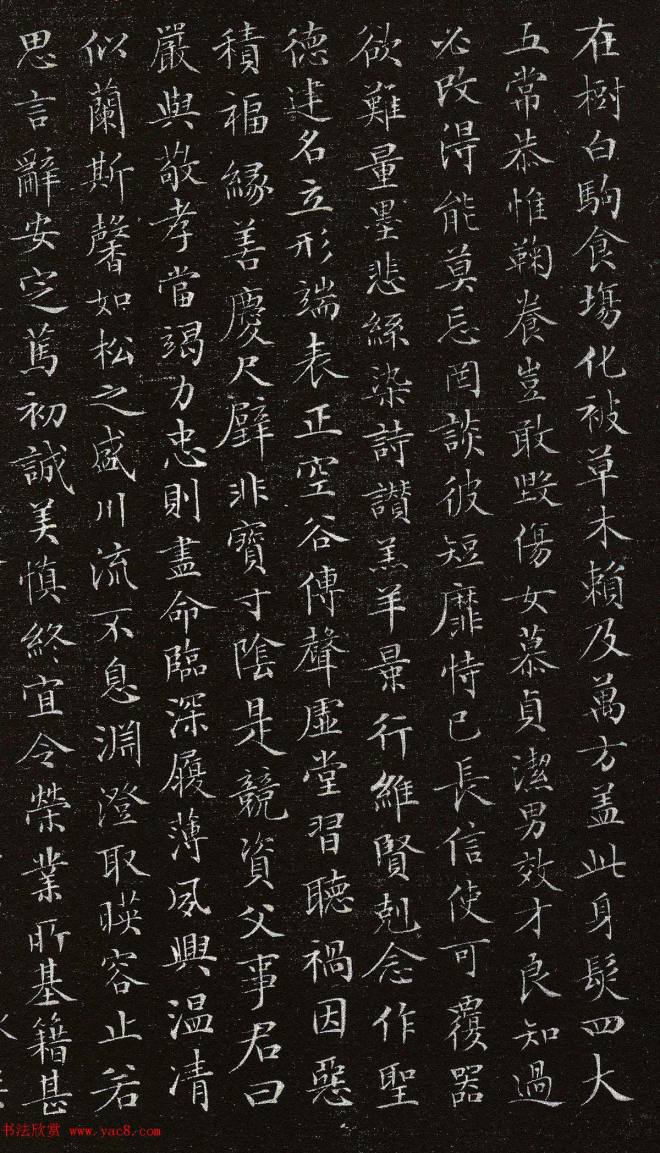 在樹白駒食塲化被草木賴及萬方盖此身髮四大
五常恭惟鞠養豈敢毀傷女慕貞潔男效才良知過
必改得能莫忘罔談彼短靡恃己長信使可覆器
欲難量墨悲絲染詩讃羔羊景行維賢剋念作聖
德建名立形端表正空谷傳聲虛堂習聽禍因惡
積福緣善慶尺璧非寶寸陰是競資父事君曰
嚴與敬孝當竭力忠則盡命臨深履薄夙興温凊
似蘭斯馨如松之盛川流不息淵澄取暎容止若
思言辭安定篤初誠美慎終宜令榮業所基籍甚
书法欣赏 www.yac8.com